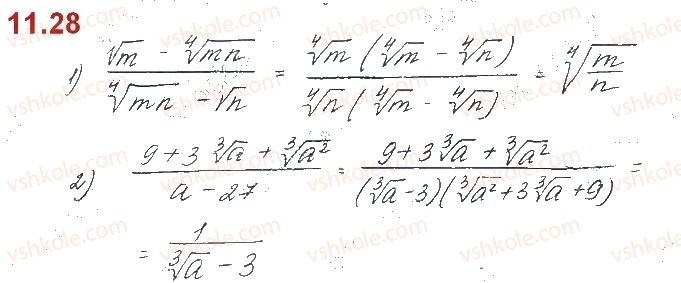 11.28
1) \frac{\sqrt{m} - \sqrt[4]{mn}}{\sqrt[4]{mn} - \sqrt{n}} = \frac{\sqrt[4]{m} (\sqrt[4]{m} - \sqrt[4]{n})}{\sqrt[4]{n} (\sqrt[4]{m} - \sqrt[4]{n})} = \sqrt[4]{\frac{m}{n}}
2) \frac{9 + 3\sqrt[3]{a} + \sqrt[3]{a^2}}{a - 27} = \frac{9 + 3\sqrt[3]{a} + \sqrt[3]{a^2}}{(\sqrt[3]{a} - 3)(\sqrt[3]{a^2} + 3\sqrt[3]{a} + 9)} =
= \frac{1}{\sqrt[3]{a} - 3}
vshkole.com